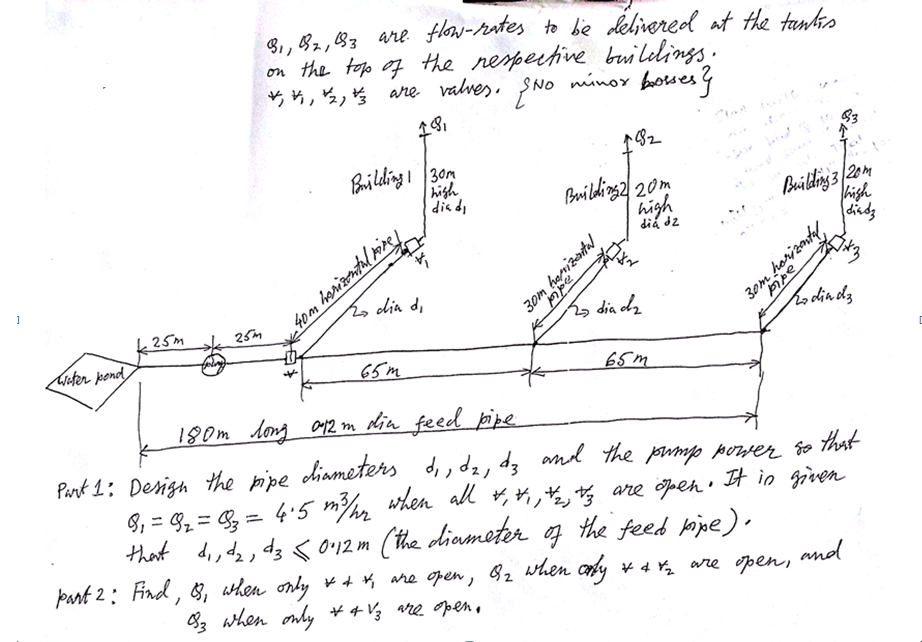 Q1, Q2, Q3 are flow-rates to be delivered at the tanks
on the top of the respective buildings.
V, V1, V2, V3 are valves. {No minor losses}
Q1
Q2
Q3
Building 1
30m
high
dia d1
Building 2
20m
high
dia d2
Building 3
20m
high
dia d3
40m horizontal pipe
V1
dia d1
30m horizontal
pipe
V2
dia d2
30m horizontal
pipe
V3
dia d3
25m
25m
water pond
pump
V
65m
65m
180m long 0.12m dia feed pipe
Part 1: Design the pipe diameters d1, d2, d3 and the pump power so that
Q1 = Q2 = Q3 = 4.5 m³/hr when all V, V1, V2, V3 are open. It is given
that d1, d2, d3 ⩽ 0.12m (the diameter of the feed pipe).
part 2: Find, Q1 when only V & V1 are open, Q2 when only V & V2 are open, and
Q3 when only V & V3 are open.